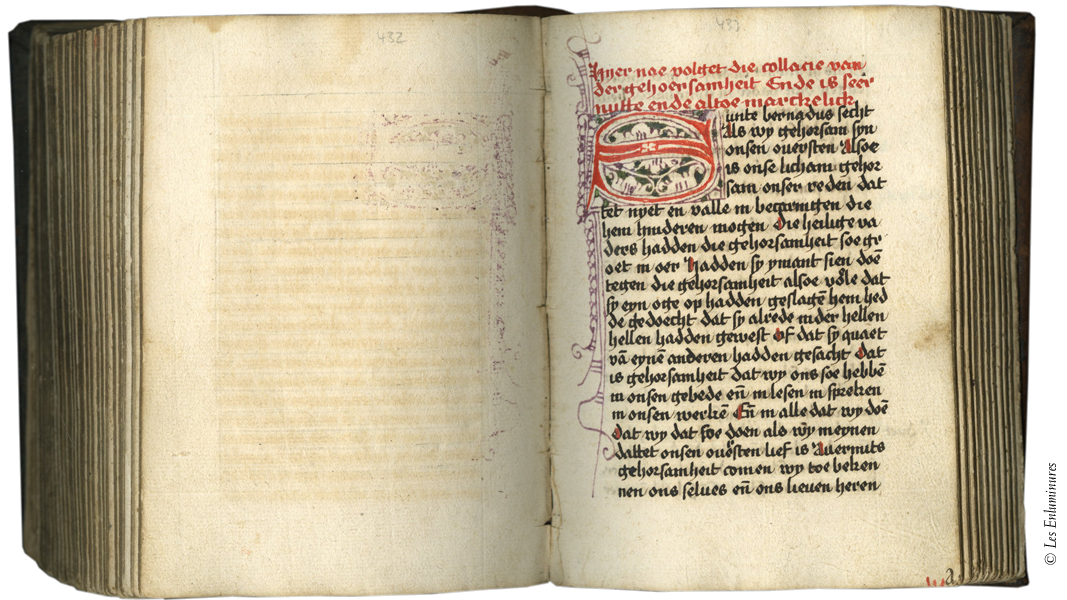 432
433
Hyer nae volget die collacie van
der gehoersamheit Ende is seer
nutte ende altoe marckelick
Sunte bernadus secht
Als wy gehorsam syn
onsen ouersten Alsoe
is onse licham gehor
sam onser reden dat
tet nyet en valle in begaringen die
hem hinderen mogen Die heilige va
ders hadden die gehorsamheit soe gr
oet in oer Hadden sy ymant sien doē
tegen die gehorsamheit alsoe völe dat
sy eyn oge op hadden geslagē hem hed
de gedoecht dat sy alrede inder hellen
hellen hadden gewest Of dat sy quaet
vā eynē anderen hadden gesacht Dat
is gehorsamheit dat wy ons soe hebbē
in onsen gebede eñ in lesen in spreken
in onsen werkē Eñ in alle dat wy doē
Dat wy dat soe doen als wy meynen
dattet onsen ouersten lief is Auermits
gehorsamheit comen wy toe beken
nen ons selues eñ ons lieuen heren
© Les Enluminures